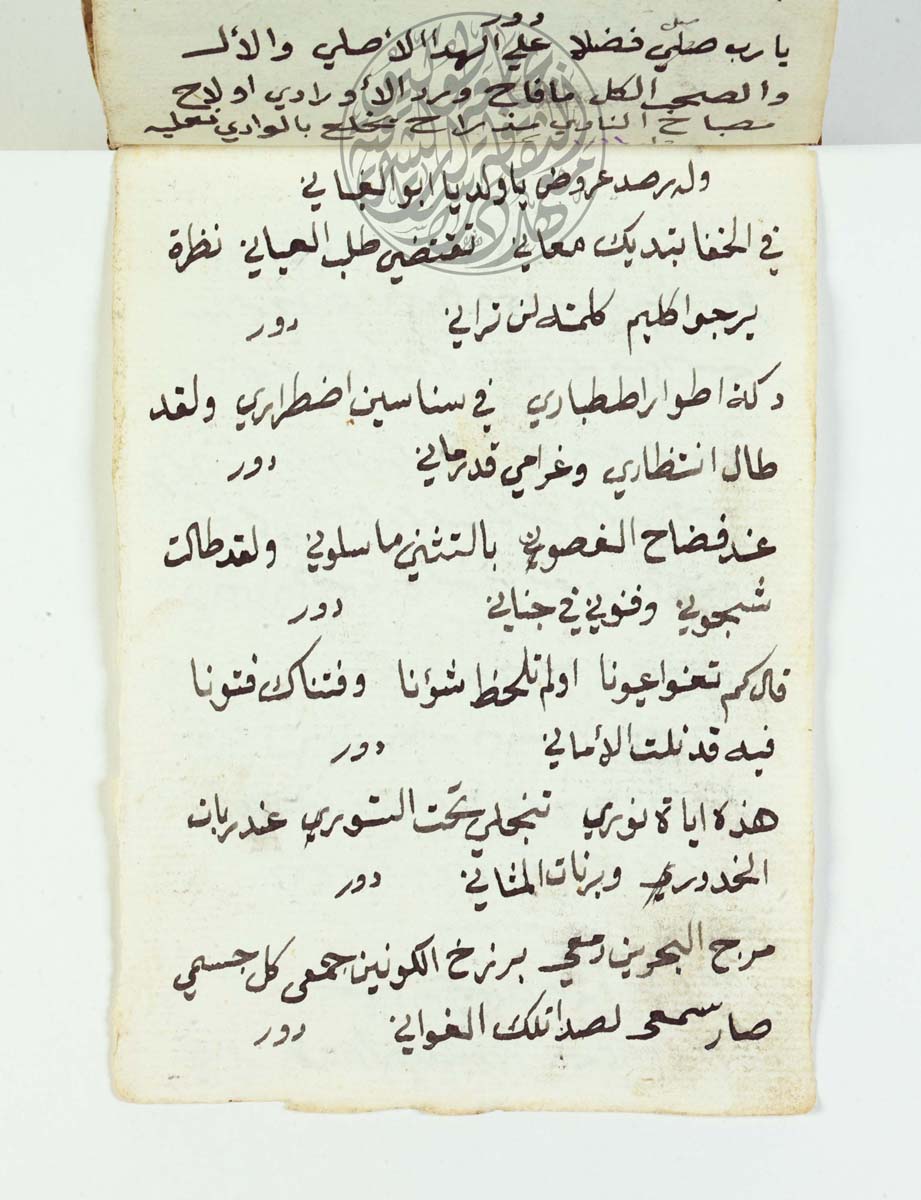 دور
يارب صلي فضلا علي الهدا الأصلي والأل
والصحب الكل مافاح ورد الأورادي اولاح
مصباح النادي
وله رصد عروض ياولد يا ابو الغباني
في الخفا بتديك معاني تقتضي طلب العياني نظرة
يرجوا كليم كلمته لن تراني دور
دكة اطوار اصطباري في سناسين اضطراري ولقد
طال انتظاري وغرامي قدرماني دور
عند فضاح الغصوني بالتثني ماسلوني ولقد طالت
شجوني وفنوني في جناني دور
قال كم تعنوا عيونا اولم تلحظ شؤنا وفتناك فتونا
فيه قد نلت الأماني دور
هذه اياة نوري تنجلي تحت الستوري عند ربات
الخدوري وبرنات المثاني دور
مرج البحرين دمعي برزخ الكونين جمعي كل جسمي
صار سمعي لصدا تلك الغواني دور